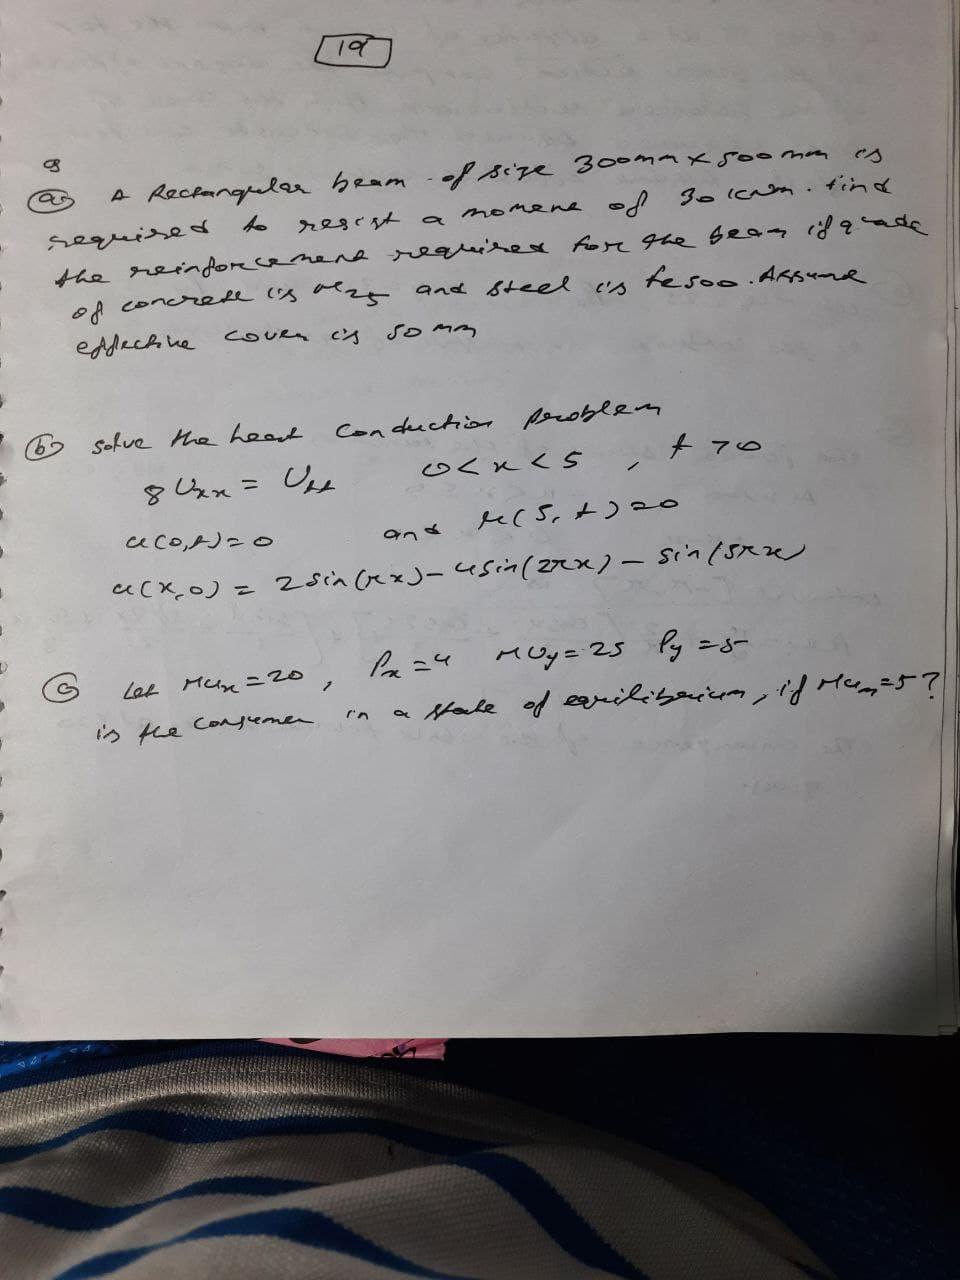 19
Q
(a) A Rectangular beam of size 300mm x 500 mm is
required to resist a moment of 30 kNm. find
the reinforcement required for the beam if grade
of concrete is M25 and steel is fe500. Assume
effective cover is 50 mm
(b) solve the heat conduction problem
8 Uxx = Utt 0<x<5 , t>0
u(0,t)=0 and u(5,t)=0
u(x,0) = 2sin(πx) - 4sin(2πx) - sin(5πx)
(c) Let MUx=20, Px=4 MUy=25 Py=5
is the consumer in a state of equilibrium, if MUm=5?